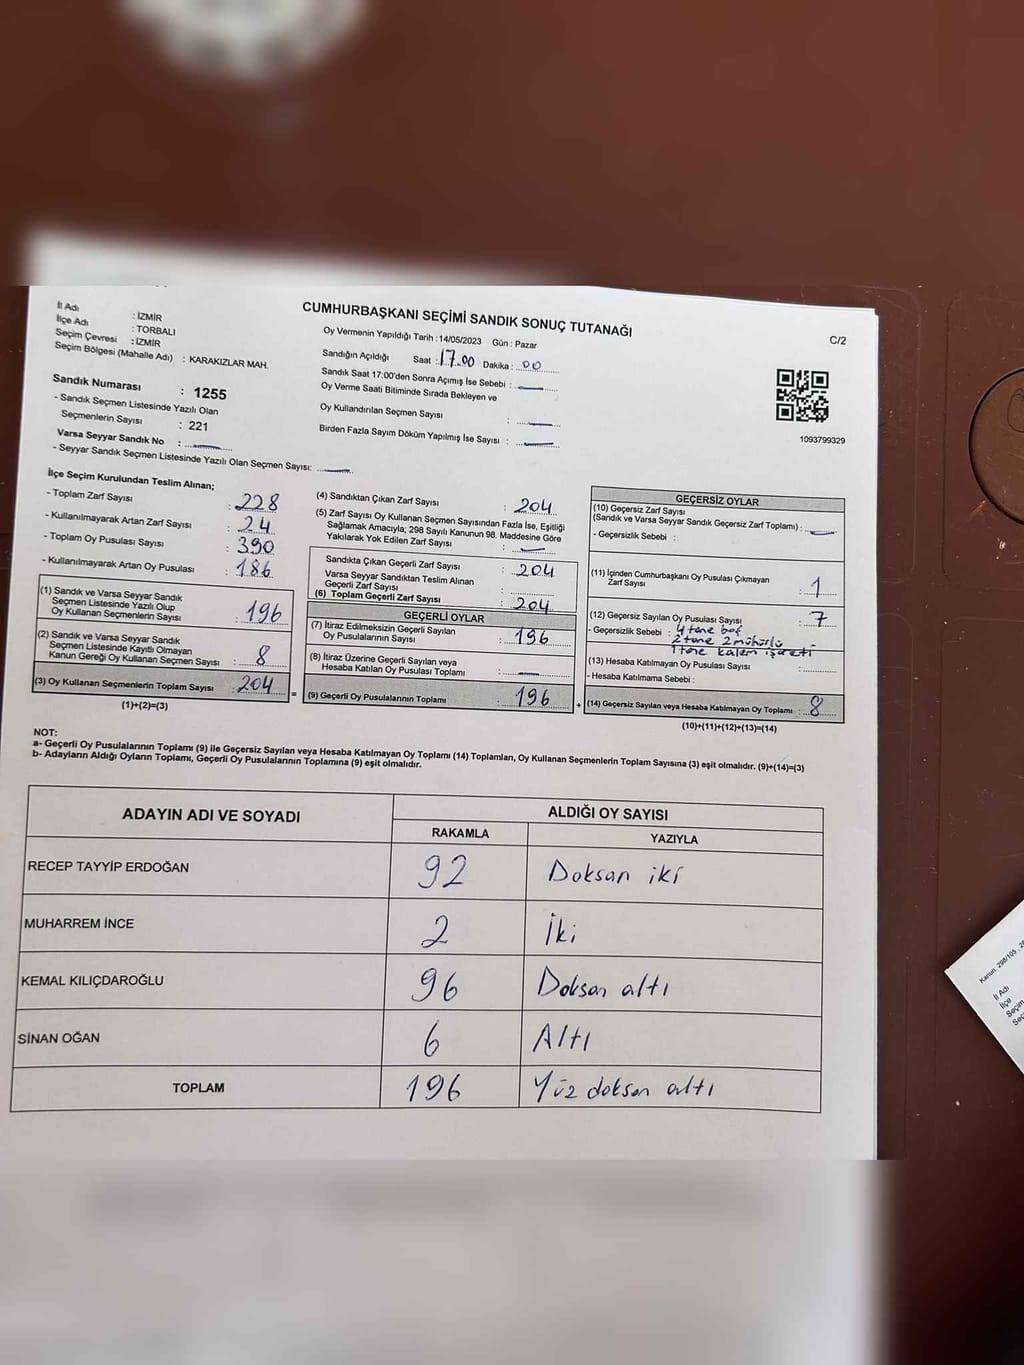 CUMHURBAŞKANI SEÇİMİ SANDIK SONUÇ TUTANAĞI
C/2
İl Adı : İZMİR
İlçe Adı : TORBALI
Seçim Çevresi : İZMİR
Seçim Bölgesi (Mahalle Adı) : KARAKIZLAR MAH.
Sandık Numarası : 1255
- Sandık Seçmen Listesinde Yazılı Olan
Seçmenlerin Sayısı : 221
Varsa Seyyar Sandık No :
- Seyyar Sandık Seçmen Listesinde Yazılı Olan Seçmen Sayısı:
Oy Vermenin Yapıldığı Tarih :14/05/2023 Gün : Pazar
Sandığın Açıldığı Saat : 17.00 Dakika : 00
Sandık Saat 17:00'den Sonra Açımış İse Sebebi :
Oy Verme Saati Bitiminde Sırada Bekleyen ve
Oy Kullandırılan Seçmen Sayısı :
Birden Fazla Sayım Döküm Yapılmış İse Sayısı :
1093799329
İlçe Seçim Kurulundan Teslim Alınan;
- Toplam Zarf Sayısı : 228
- Kullanılmayarak Artan Zarf Sayısı : 24
- Toplam Oy Pusulası Sayısı : 390
- Kullanılmayarak Artan Oy Pusulası : 186
(1) Sandık ve Varsa Seyyar Sandık
Seçmen Listesinde Yazılı Olup
Oy Kullanan Seçmenlerin Sayısı : 196
(2) Sandık ve Varsa Seyyar Sandık
Seçmen Listesinde Kayıtlı Olmayan
Kanun Gereği Oy Kullanan Seçmen Sayısı : 8
(3) Oy Kullanan Seçmenlerin Toplam Sayısı : 204 =
(1)+(2)=(3)
(4) Sandıktan Çıkan Zarf Sayısı : 204
(5) Zarf Sayısı Oy Kullanan Seçmen Sayısından Fazla İse, Eşitliği
Sağlamak Amacıyla; 298 Sayılı Kanunun 98. Maddesine Göre
Yakılarak Yok Edilen Zarf Sayısı :
Sandıkta Çıkan Geçerli Zarf Sayısı : 204
Varsa Seyyar Sandıktan Teslim Alınan
Geçerli Zarf Sayısı :
(6) Toplam Geçerli Zarf Sayısı : 204
GEÇERLİ OYLAR
(7) İtiraz Edilmeksizin Geçerli Sayılan
Oy Pusulalarının Sayısı : 196
(8) İtiraz Üzerine Geçerli Sayılan veya
Hesaba Katılan Oy Pusulası Toplamı :
(9) Geçerli Oy Pusulalarının Toplamı : 196 +
GEÇERSİZ OYLAR
(10) Geçersiz Zarf Sayısı
(Sandık ve Varsa Seyyar Sandık Geçersiz Zarf Toplamı) :
- Geçersizlik Sebebi :
(11) İçinden Cumhurbaşkanı Oy Pusulası Çıkmayan
Zarf Sayısı : 1
(12) Geçersiz Sayılan Oy Pusulası Sayısı : 7
- Geçersizlik Sebebi : 4 tane boş
2 tane 2 mühürlü
1 tane kalem işareti
(13) Hesaba Katılmayan Oy Pusulası Sayısı :
- Hesaba Katılmama Sebebi :
(14) Geçersiz Sayılan veya Hesaba Katılmayan Oy Toplamı : 8
(10)+(11)+(12)+(13)=(14)
NOT:
a- Geçerli Oy Pusulalarının Toplamı (9) ile Geçersiz Sayılan veya Hesaba Katılmayan Oy Toplamı (14) Toplamları, Oy Kullanan Seçmenlerin Toplam Sayısına (3) eşit olmalıdır. (9)+(14)=(3)
b- Adayların Aldığı Oyların Toplamı, Geçerli Oy Pusulalarının Toplamına (9) eşit olmalıdır.
ADAYIN ADI VE SOYADI ALDIĞI OY SAYISI
RAKAMLA YAZIYLA
RECEP TAYYİP ERDOĞAN 92 Doksan iki
MUHARREM İNCE 2 İki
KEMAL KILIÇDAROĞLU 96 Doksan altı
SİNAN OĞAN 6 Altı
TOPLAM 196 Yüz doksan altı
Kanun, 298/105
İl Adı
İlçe
Seçim